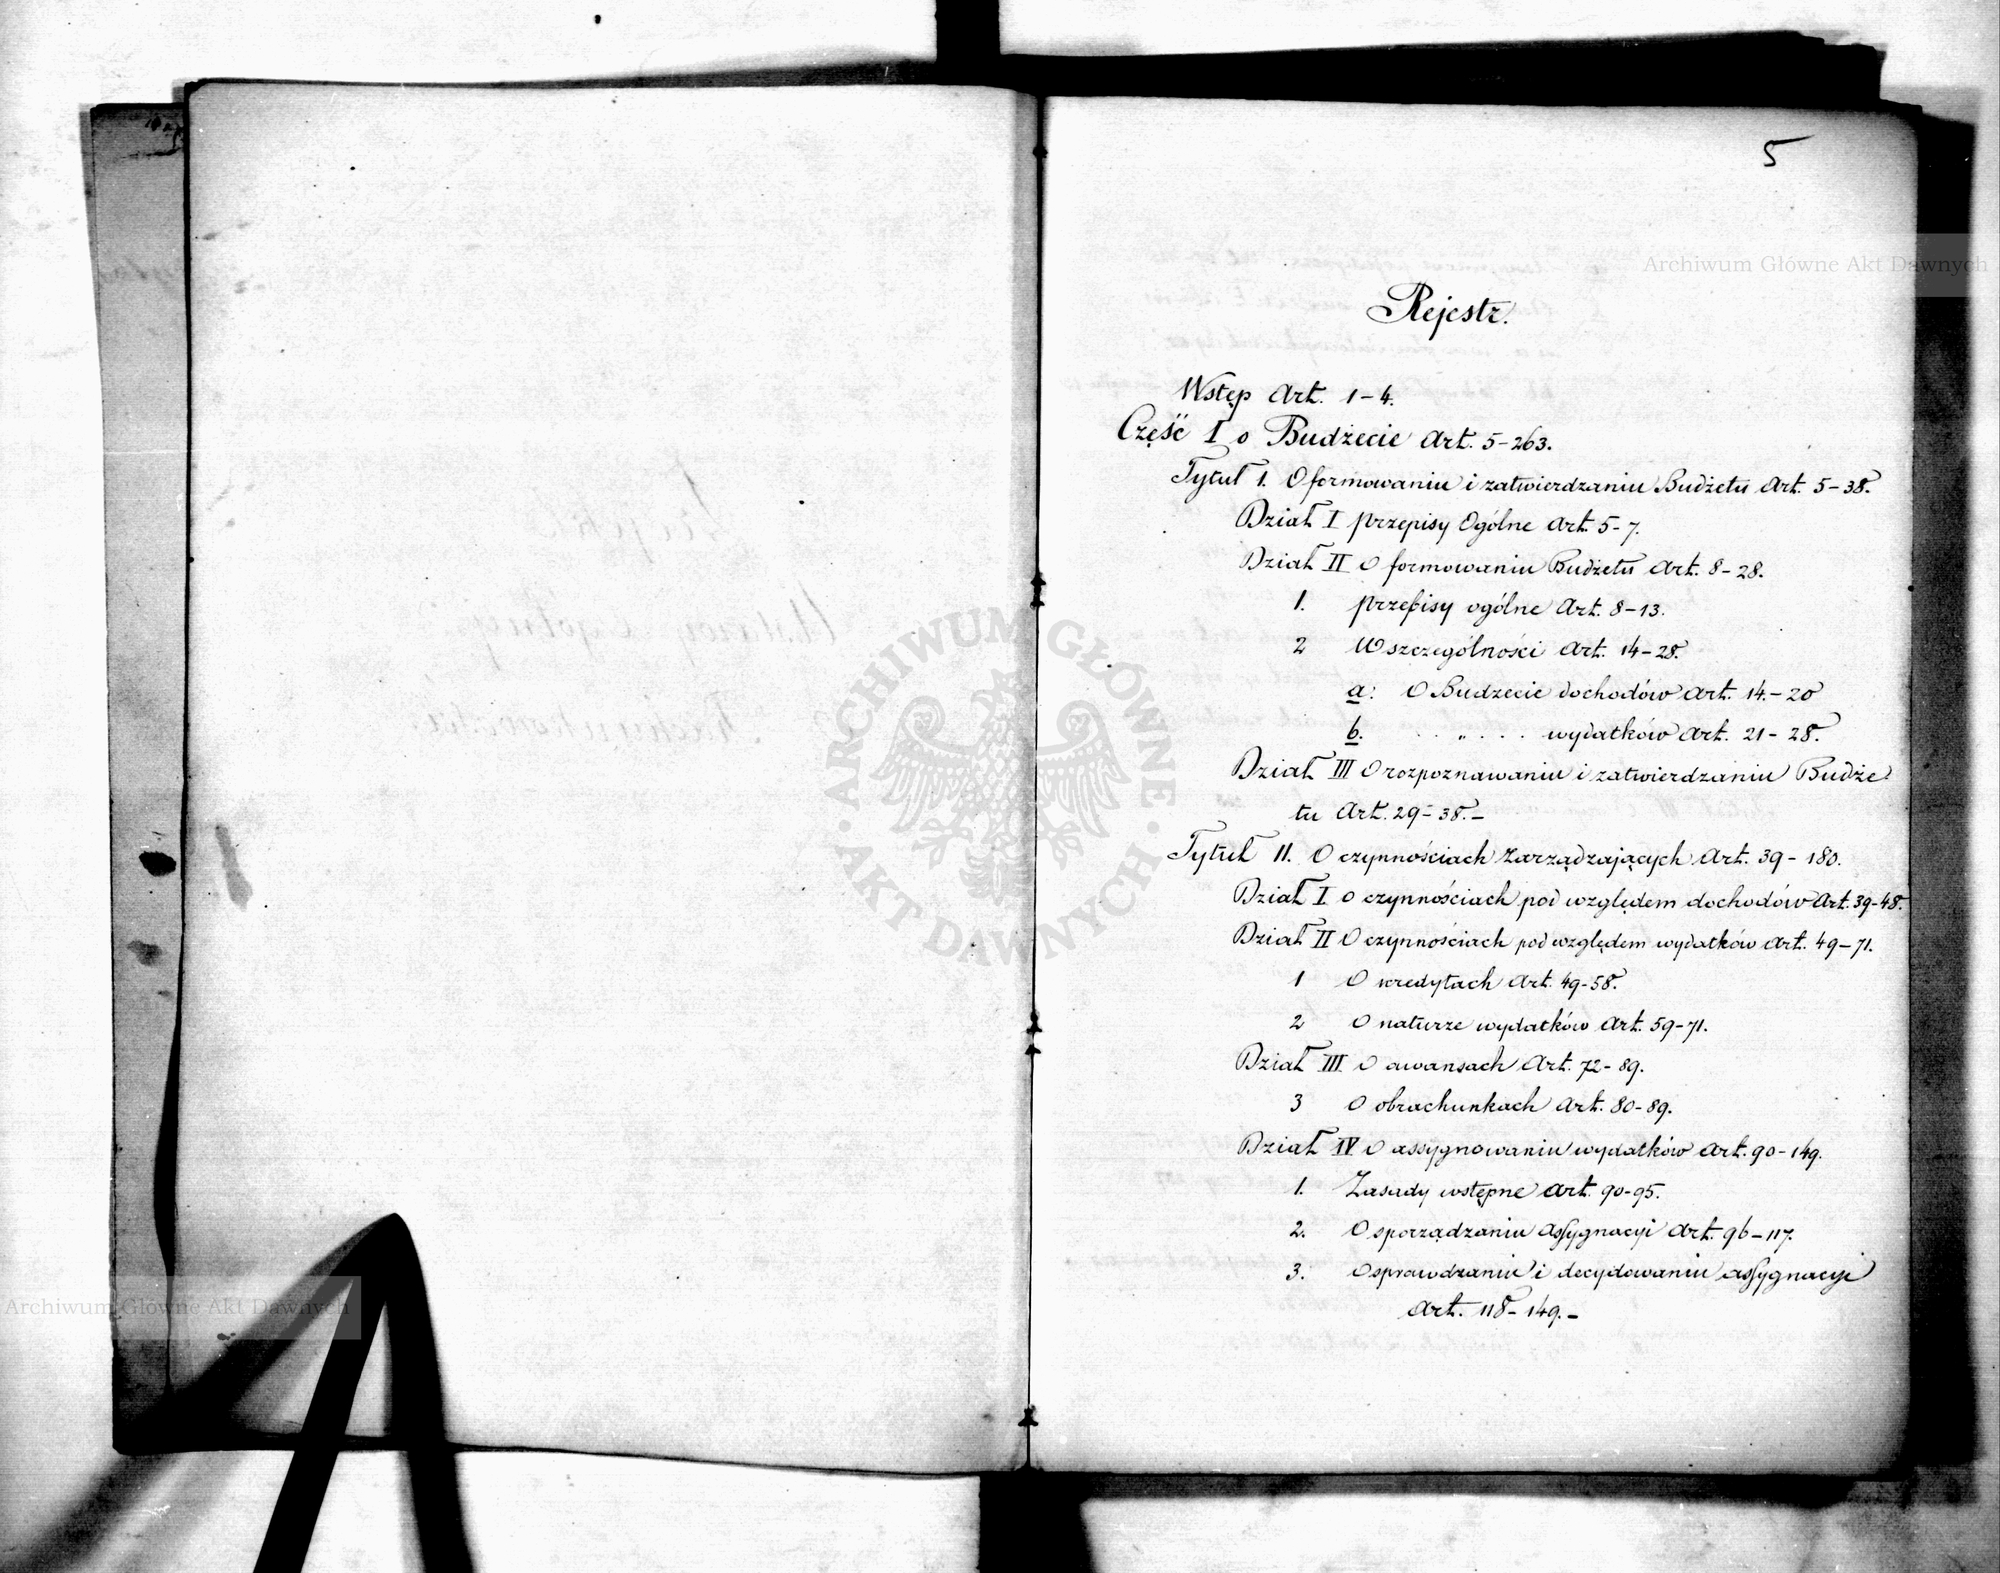 5
Rejestr.
Wstęp Art. 1-4.
Część I o Budżecie Art. 5-263.
Tytuł I. O formowaniu i zatwierdzaniu Budżetu Art. 5-38.
Dział I przepisy Ogólne Art. 5-7.
Dział II O formowaniu Budżetu Art. 8-28.
1. przepisy ogólne Art. 8-13.
2 W szczególności Art. 14-28.
a: O Budzecie dochodów Art. 14.-20
b. . . „ . . . wydatków Art. 21-28.
Dział III O rozpoznawaniu i zatwierdzaniu Budże
tu Art. 29-38.-
Tytuł II. O czynnościach Zarządzających Art. 39-180.
Dział I o czynnościach pod względem dochodów Art. 39-48.
Dział II O czynnościach pod względem wydatków Art. 49-71.
1 O kredytach Art. 49-58.
2 O naturze wydatków Art. 59-71.
Dział III O awansach Art. 72-89.
3 O obrachunkach Art. 80-89.
Dział IV O assygnowaniu wydatków Art. 90-149.
1. Zasady wstępne Art. 90-95.
2. O sporządzaniu assygnacyi Art. 96-117.
3. O sprawdzaniu i decydowaniu assygnacyi
Art. 118-149.-
Archiwum Główne Akt Dawnych
Archiwum Główne Akt Dawnych
ARCHIWUM GŁÓWNE
· AKT DAWNYCH ·